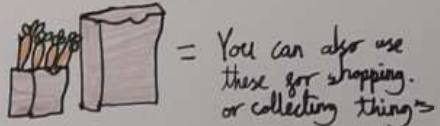 = You can also use
these for shopping.
or collecting things